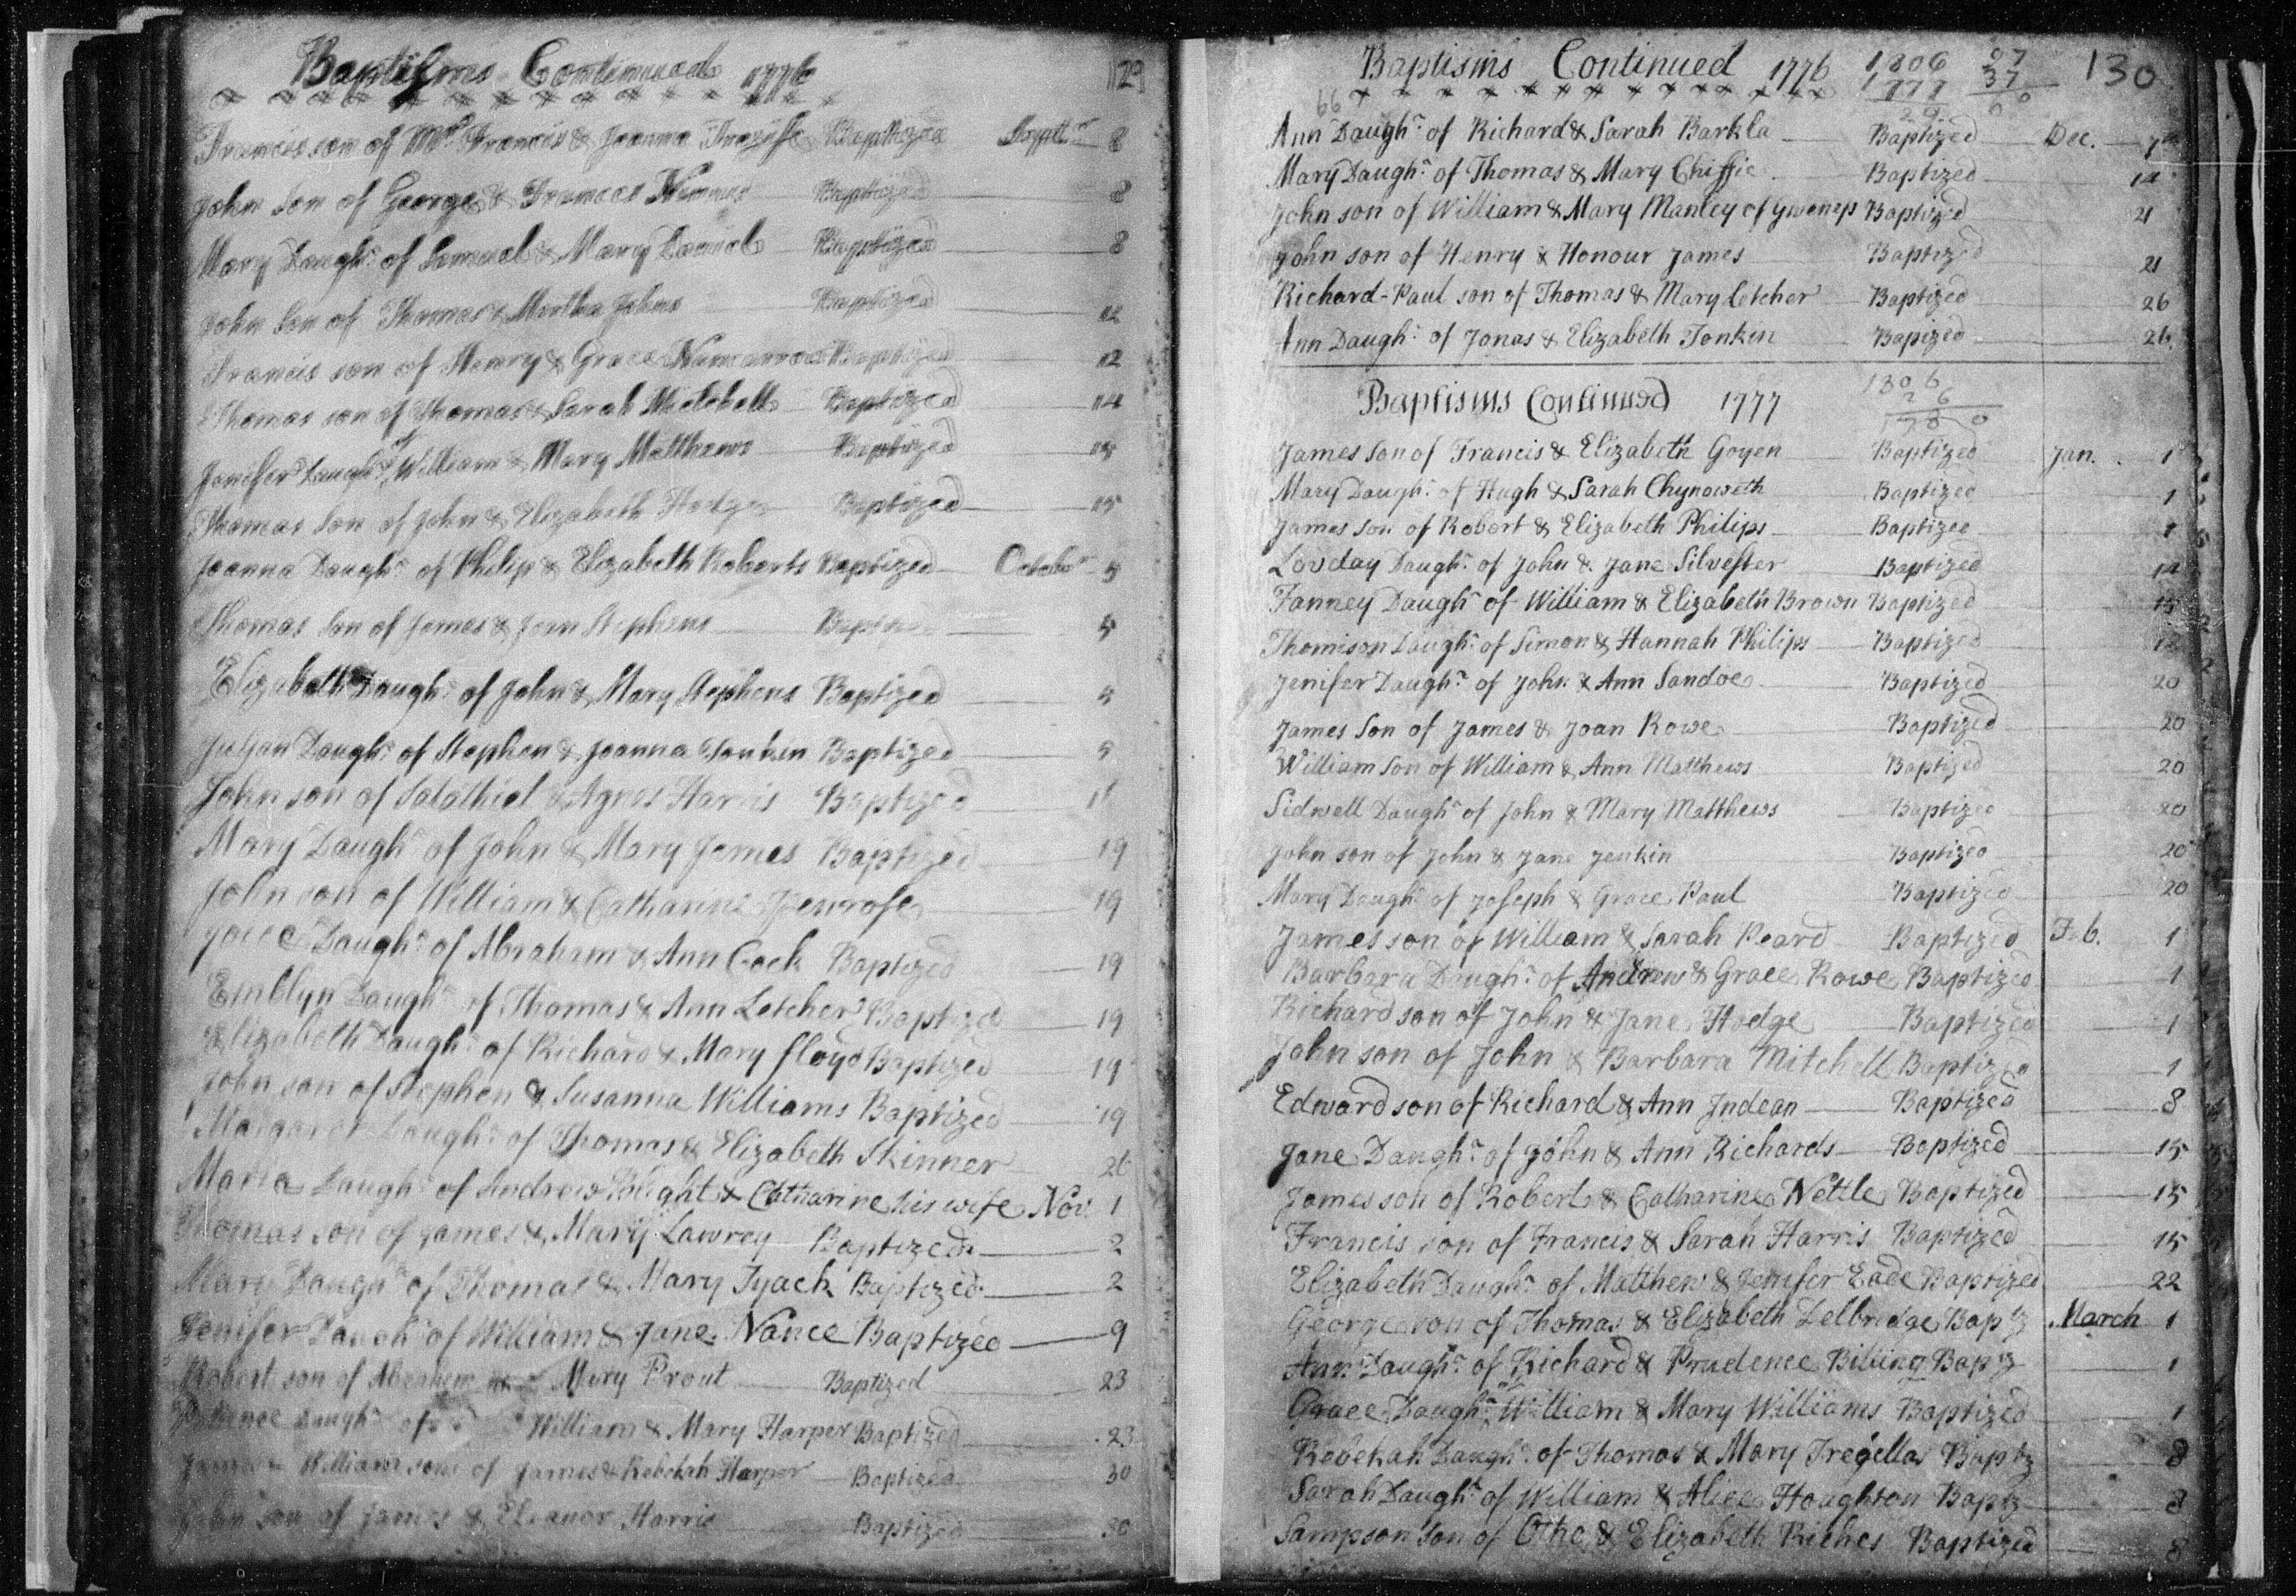 Baptisms Continued 1776
Francis son of Mr. Francis & Joanna Baptized Septr. 8
John Son of George & Frances Baptized 8
Mary Daughr. of Samuel & Mary Daniel Baptized 8
John Son of Thomas & Martha Johns Baptized 12
Francis son of Henry & Grace Baptized 12
Thomas son of Thomas & Sarah Mitchell Baptized 14
Jenifer Daughr. of William & Mary Matthews Baptized 15
Thomas Son of John & Elizabeth Hodge Baptized 15
Joanna Daughr. of Philip & Elizabeth Roberts Baptized October 5
Thomas Son of James & Joan Stephens 5
Elizabeth Daughr. of John & Mary Stephens Baptized 5
Julyan Daughr. of Stephen & Joanna Baptized 5
John son of Salathiel & Agnes Harris Baptized
Mary Daughr. of John & Mary James Baptized 19
John son of William & Catharine Penrose 19
Joice Daughr. of Abraham & Ann Cock Baptized 19
Emblyn Daughr. of Thomas & Ann Letcher Baptized 19
Elizabeth Daughr. of Richard & Mary floyd Baptized 19
John son of Stephen & Susanna Williams Baptized 19
Margaret Daughr. of Thomas & Elizabeth Skinner 26
Maria Daughr. of Andrew & Catharine his wife Nov. 1
Thomas Son of James & Mary Lawrey Baptized 2
Mary Daughr. of Thomas & Mary Tyack Baptized 2
Jenifer Daughr. of William & Jane Nance Baptized 9
Robert son of Abraham & Mary Prout Baptized 23
Patience Daughr. of William & Mary Harper Baptized 23
James William son of James & Rebekah Harper Baptized 30
John Son of James & Eleanor Harris Baptized 30
Baptisms Continued 1776 130
1806 37
1777
Ann Daughr. of Richard & Sarah Barkla Baptized Dec. 7th
Mary Daughr. of Thomas & Mary Chiffie Baptized 14
John son of William & Mary Manley of Gwenap Baptized 21
John son of Henry & Honour James Baptized 21
Richard-Paul son of Thomas & Mary letcher Baptized 26
Ann Daughr. of Jonas & Elizabeth Tonken Bapized 26
Baptisms Continued 1777
1806
26
James Son of Francis & Elizabeth Goyen Baptized Jan. 1
Mary Daughr. of Hugh & Sarah Chynoweth Baptized 1
James Son of Robert & Elizabeth Philips Baptized 1
Loveday Daughr. of John & Jane Silvester Baptized 12
Fanney Daughr. of William & Elizabeth Brown Baptized 15
Thomison Daughr. of Simon & Hannah Philips Baptized
Jenifer Daughr. of John & Ann Sandoe Baptized 20
James Son of James & Joan Rowe Baptized 20
William Son of William & Ann Matthews Baptized 20
Sidwell Daughr. of John & Mary Matthews Baptized 20
John son of John & Jane Jenkin Baptized 20
Mary Daughr. of Joseph & Grace Paul Baptized 20
James son of William & Sarah Peard Baptized Feb. 1
Barbara Daughr. of Andrew & Grace Rowe Baptized 1
Richard son of John & Jane Hodge Baptized 1
John son of John & Barbara Mitchell Baptized 1
Edward son of Richard & Ann Indean Baptized 8
Jane Daughr. of John & Ann Richards Baptized 15
James son of Robert & Catharine Nettle Baptized 15
Francis son of Francis & Sarah Harris Baptized 15
Elizabeth Daughr. of Matthew & Jenifer Eade Baptized 22
George son of Thomas & Elizabeth Delbridge Baptz March 1
Ann Daughr. of Richard & Prudence Billing Baptz 1
Grace Daughr. of William & Mary Williams Baptized 1
Rebekah Daughr. of Thomas & Mary Tregellas Baptz 8
Sarah Daughr. of William & Alice Houghton Baptz 8
Sampson Son of Otho & Elizabeth Riches Baptized 8